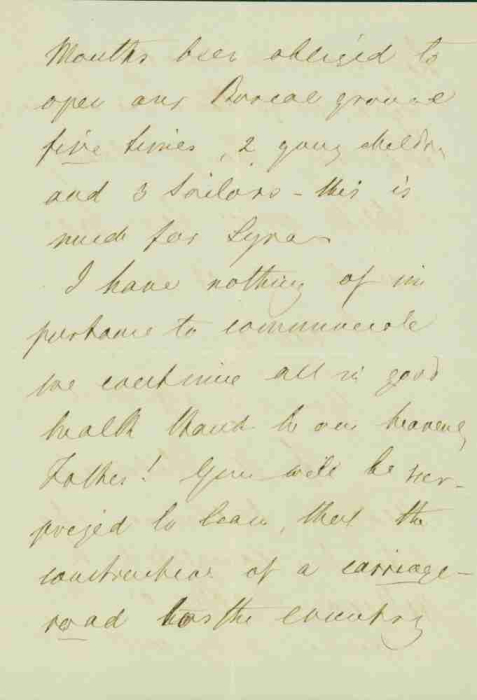 Months been obliged to
open our Burial ground
five times, 2 young childr.
and 3 Sailors - this is
much for Syra -
I have nothing of im
portance to communicate
we continue all in good
health thank be our heavenly
Father! You will be sur-
prized to learn, that the
construction of a carriage-
road to the country